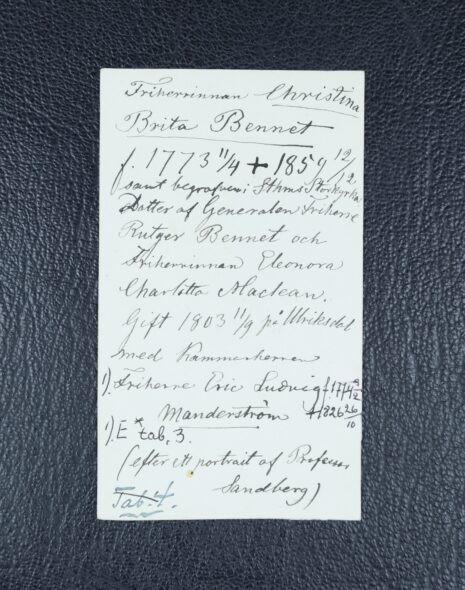 Friherrinnan Christina
Brita Bennet
f. 1773 11/4 + 1859 12/12
samt begrafven i Sthms Storkyrka
Dotter af Generalen Friherre
Rutger Bennet och
Friherrinnan Eleonora
Charlotta Maclean.
Gift 1803 11/9 på Ulriksdal
med Kammarherren
1). Friherre Eric Ludvig
Manderström + 1826 26/10
1). E* tab, 3.
(efter ett portrait af Professor
Sandberg)
Tab. 4.